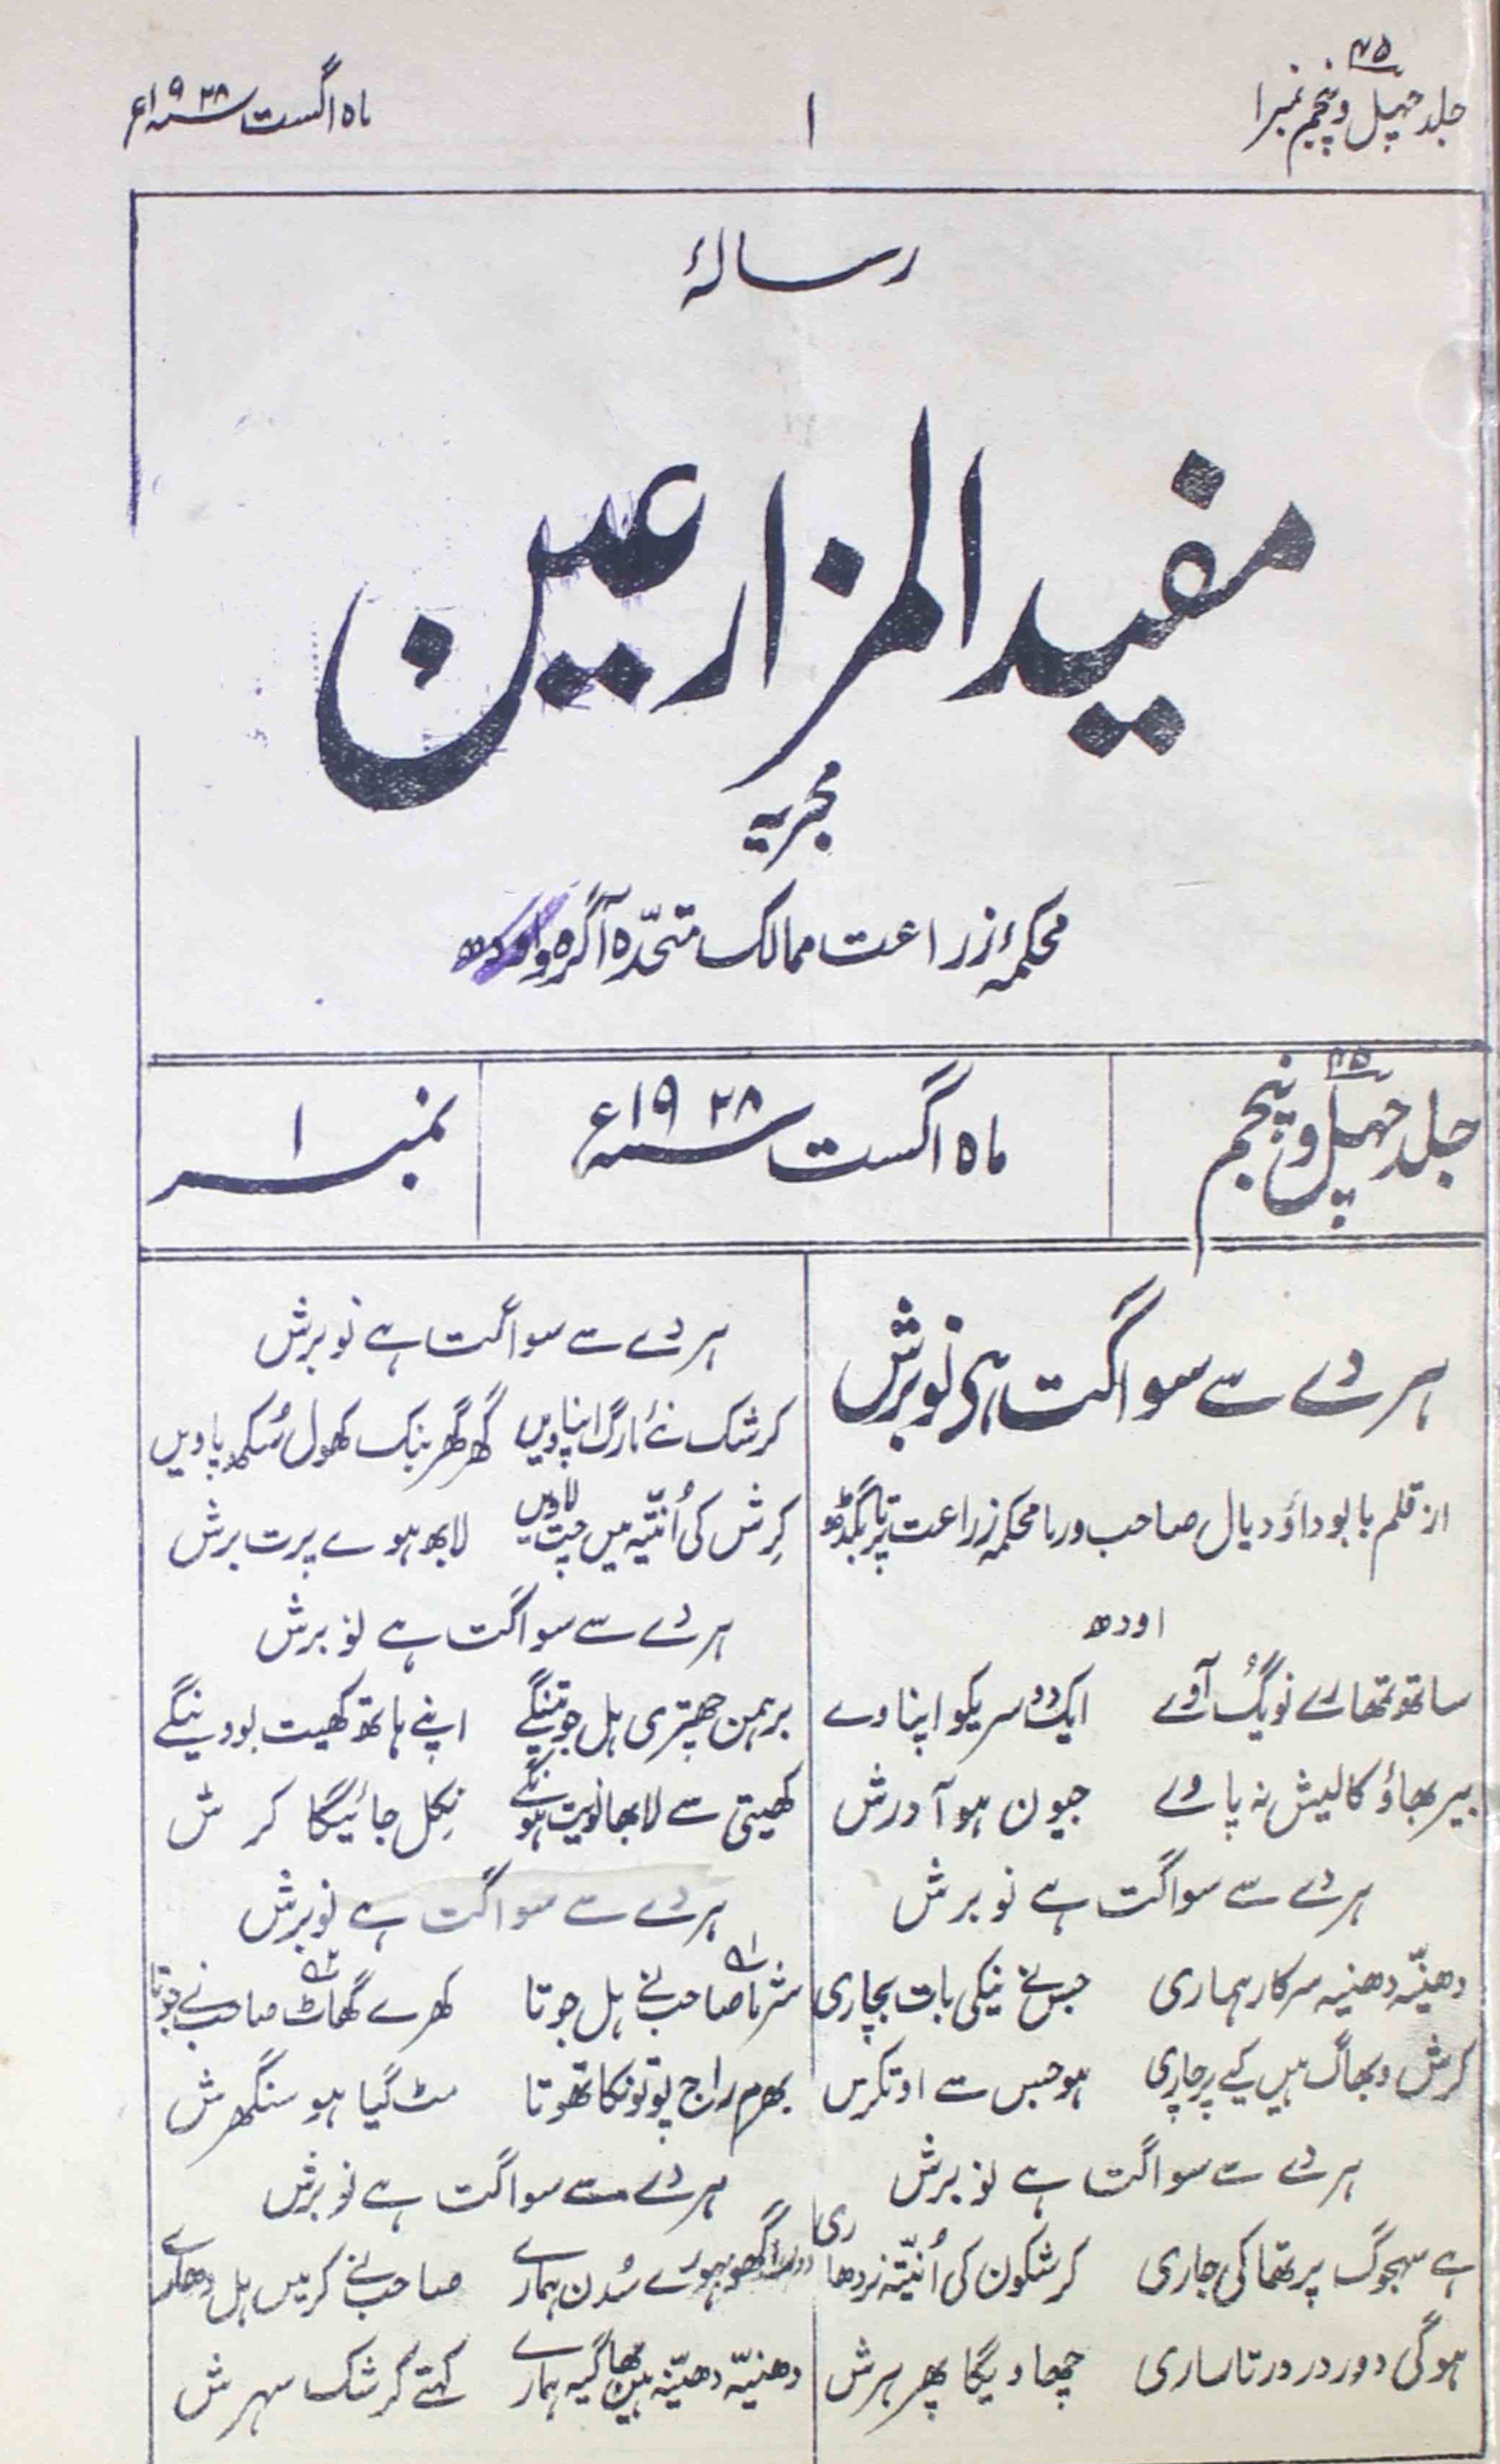 جلد چہل و پنجم نمبر ۱
۴۵
۱
ماہ اگست سنہ ۱۹۲۸ء
رسالۂ
مفید المزارعین
مجریہ
محکمۂ زراعت ممالک متحدّہ آگرہ و اودھ
جلد چہل و پنجم
۴۵
ماہ اگست سنہ ۱۹۲۸ء
نمبر ۱
ہردے سے سواگت ہی نوبرش
از قلم بابو داؤ دیال صاحب ورما محکمہ زراعت پرتابگڈھ
اودھ
ساتھ تمھارے نویُگ آوے ایک دوسریکو اپناوے
بیر بھاؤ کا لیش نہ پاوے جیون ہو آدرش
ہردے سے سواگت ہے نوبرش
دھنیّہ دھنیہ سرکار ہماری جسنے نیکی بات بچاری
کرش وبھاگ ہیں کیے پرچاری ہو جس سے اوتکرش
ہردے سے سواگت ہے نوبرش
ہے سہجوگ پرتھا کی جاری کرشکون کی اُنیّتہ نردھاری
ہوگی دور دردرتا ساری چھاویگا پھر ہرش
ہردے سے سواگت ہے نوبرش
کرشک نئے مارگ اپناویں گھر گھر بنک کھول سُکھ پاویں
کرِش کی اُنیّتہ میں چت لاویں لابھ ہووے پرت برش
ہردے سے سواگت ہے نوبرش
برہمن چھتری ہل جوتینگے اپنے ہاتھ کھیت بودینگے
کھیتی سے لابھانویت ہونگے نِکل جائیگا کرش
ہردے سے سواگت ہے نوبرش
شرما صاحب نے ہل جوتا کھرے گھاٹ صاحب نے جوتا
بھرم راج پوتونکا تھوتا مٹ گیا ہو سنگھرش
ہردے سے سواگت ہے نوبرش
گھوہورے سُدن ہمارے صاحب نے کرمیں ہل دھارے
دھنیّہ دھنیّہ ہیں بھاگیہ ہمارے کہتے کرشک سہرش